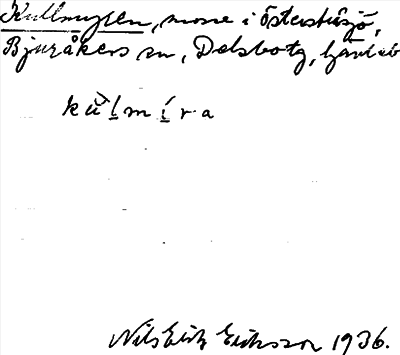 Kullmyren, mosse i Österstråsjö,
Bjuråkers sn, Delsbo tg, Gävleb
kùl̲mí̲ra
Nils Erik Eriksson 1936.